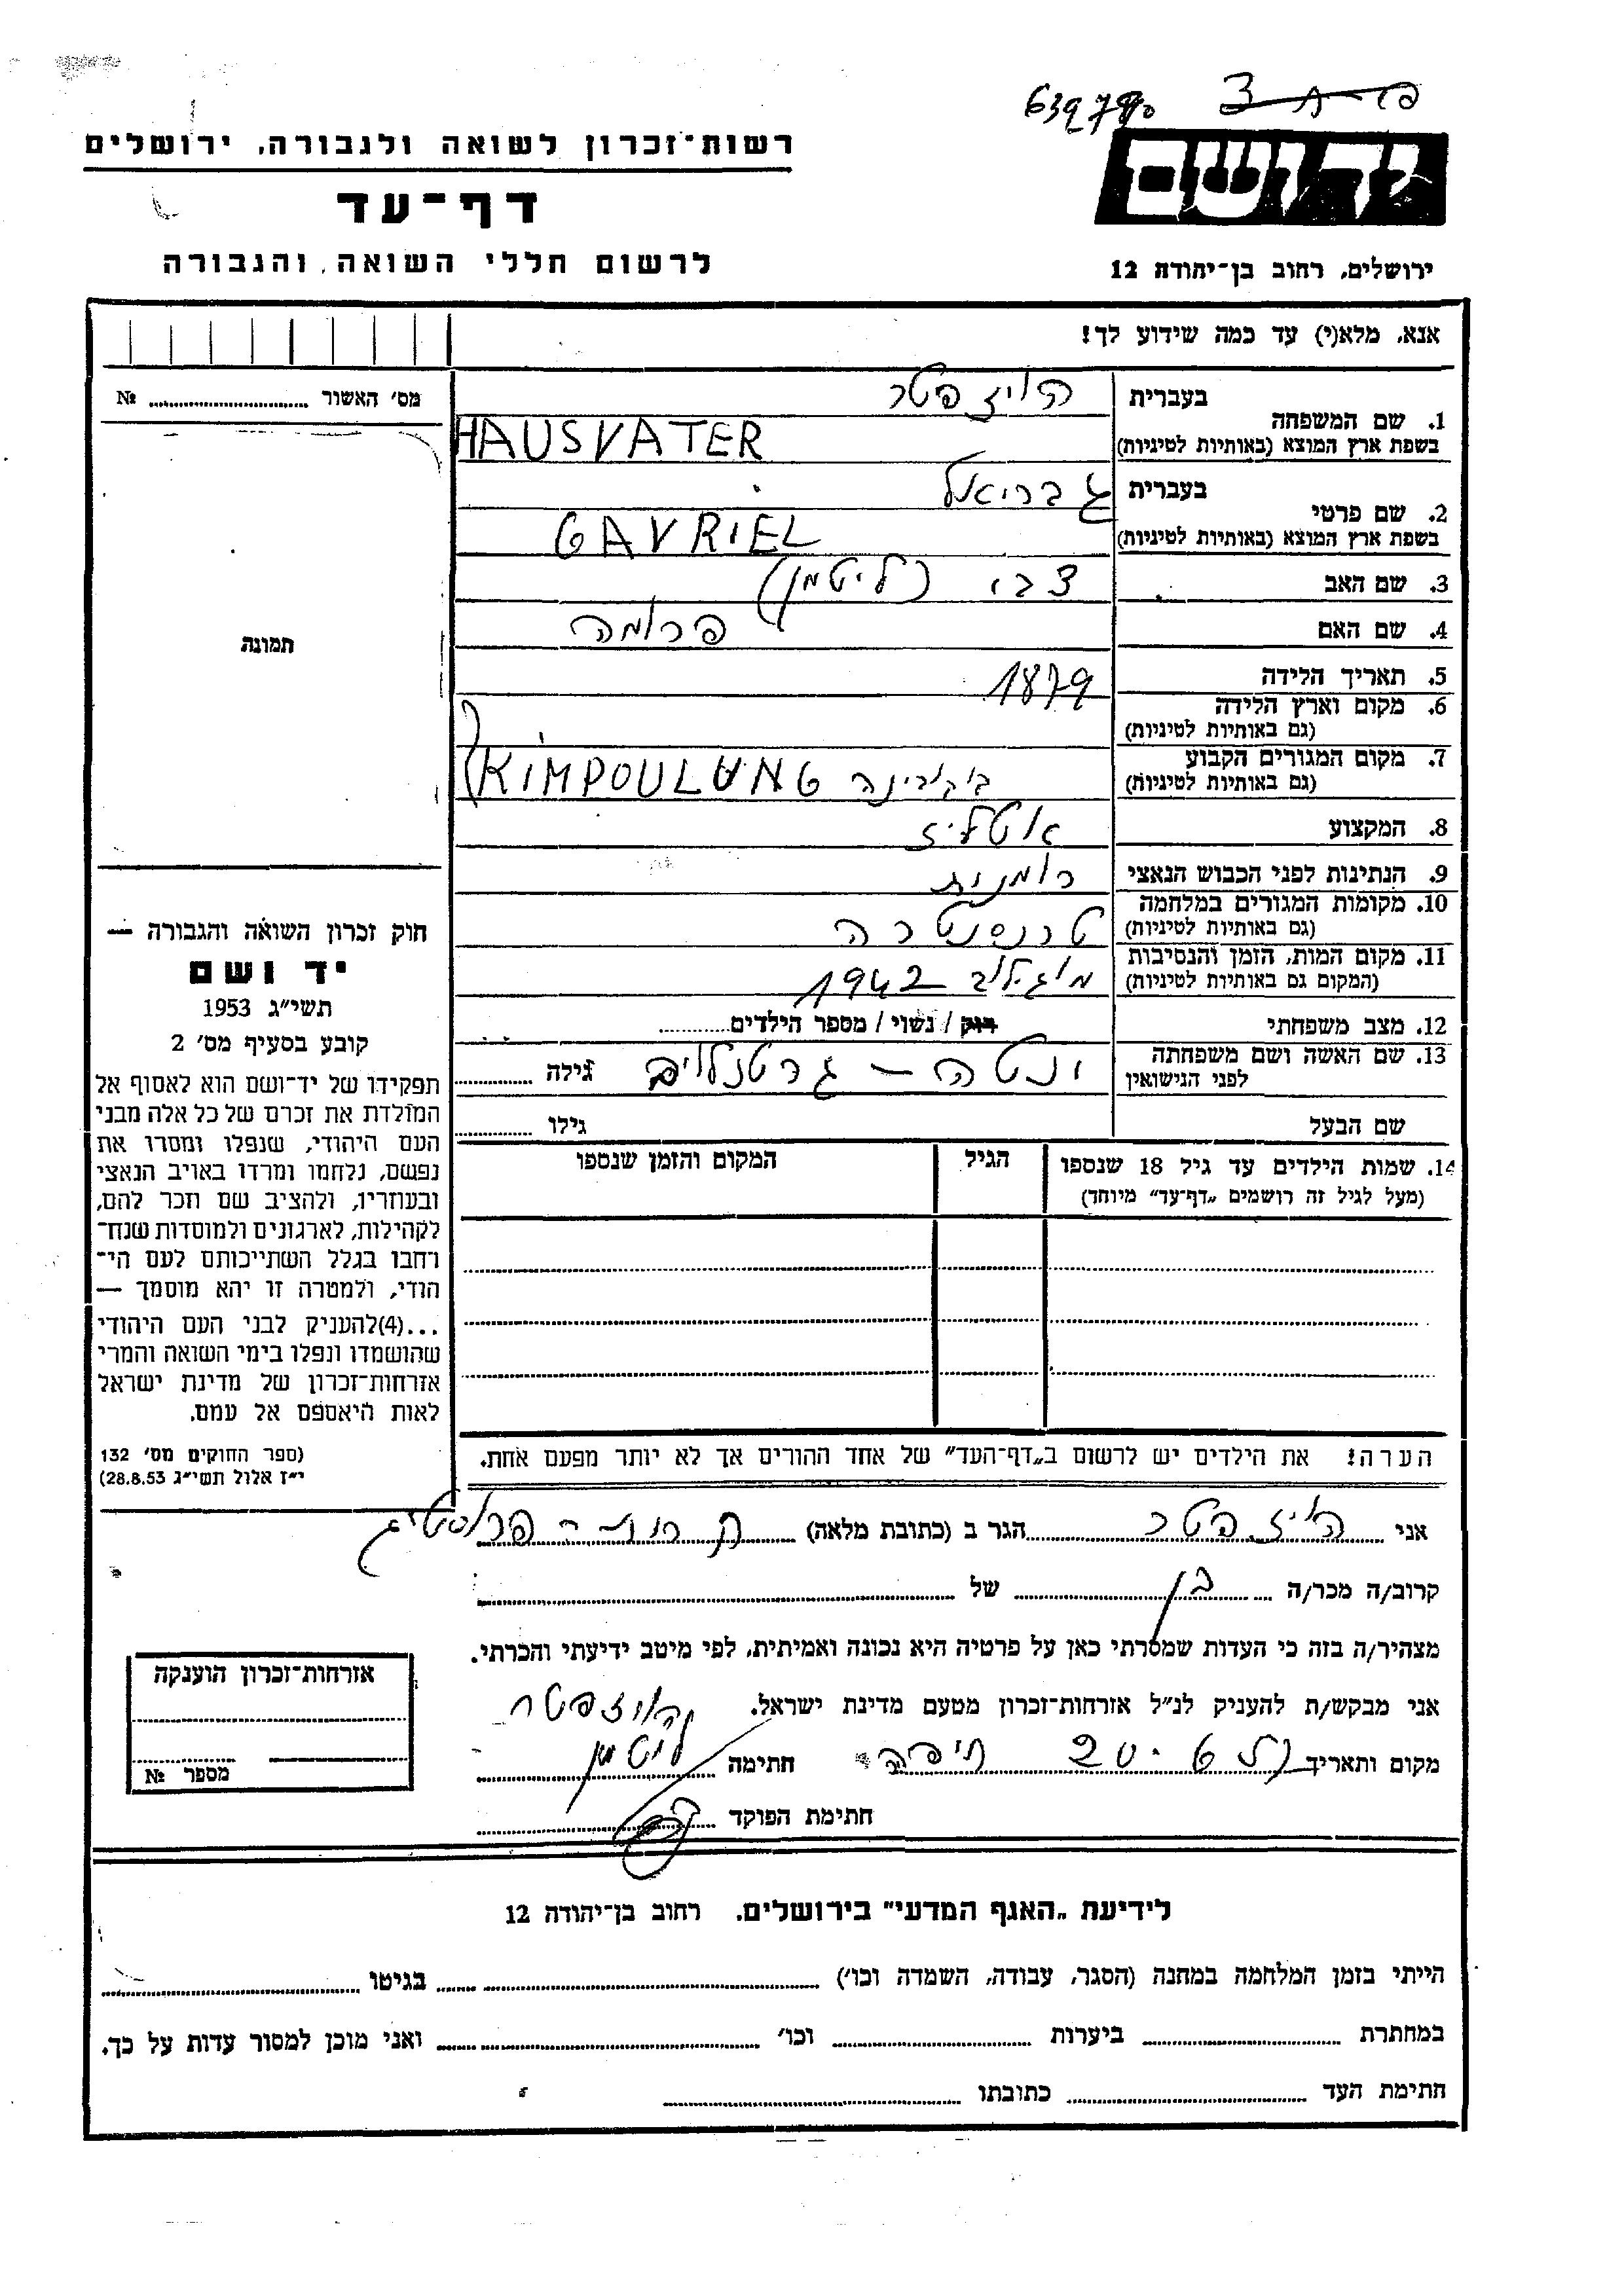 639780
יד ושם
ירושלים, רחוב בן־יהודה 12
רשות־זכרון לשואה ולגבורה, ירושלים
דף־עד
לרשום חללי השואה והגבורה
אנא, מלא(י) עד כמה שידוע לך!
מס׳ האשור № 
תמונה
1. שם המשפחה בעברית הויזפטר
בשפת ארץ המוצא (באותיות לטיניות) HAUSVATER
2. שם פרטי בעברית גבריאל
בשפת ארץ המוצא (באותיות לטיניות) GAVRIEL
3. שם האב צבי (ליטמן)
4. שם האם פרומה
5. תאריך הלידה 1879
6. מקום וארץ הלידה
(גם באותיות לטיניות)
7. מקום המגורים הקבוע
(גם באותיות לטיניות) בוקובינה KIMPOULUNG
8. המקצוע אטליז
9. הנתינות לפני הכבוש הנאצי רומנית
10. מקומות המגורים במלחמה
(גם באותיות לטיניות) טרנסנטריה
11. מקום המות, הזמן והנסיבות
(המקום גם באותיות לטיניות) מוגילוב 1942
12. מצב משפחתי רוק / נשוי / מספר הילדים
13. שם האשה ושם משפחתה
לפני הנישואין ינטה – גרטנלויב גילה
שם הבעל גילו
14. שמות הילדים עד גיל 18 שנספו הגיל המקום והזמן שנספו
(מעל לגיל זה רושמים „דף־עד” מיוחד)
הערה! את הילדים יש לרשום ב„דף־העד” של אחד ההורים אך לא יותר מפעם אחת.
חוק זכרון השואה והגבורה —
יד ושם
תשי״ג 1953
קובע בסעיף מס׳ 2
תפקידו של יד־ושם הוא לאסוף אל
המולדת את זכרם של כל אלה מבני
העם היהודי, שנפלו ומסרו את
נפשם, נלחמו ומרדו באויב הנאצי
ובעוזריו, ולהציב שם וזכר להם,
לקהילות, לארגונים ולמוסדות שנח־
רבו בגלל השתייכותם לעם הי־
הודי, ולמטרה זו יהא מוסמך —
...(4)להעניק לבני העם היהודי
שהושמדו ונפלו בימי השואה והמרי
אזרחות־זכרון של מדינת ישראל
לאות היאספם אל עמם.
(ספר החוקים מס׳ 132
י״ז אלול תשי״ג 28.8.53)
אני הויזפטר הגר ב (כתובת מלאה)
קרוב/ה מכר/ה בן של
מצהיר/ה בזה כי העדות שמסרתי כאן על פרטיה היא נכונה ואמיתית, לפי מיטב ידיעתי והכרתי.
אני מבקש/ת להעניק לנ״ל אזרחות־זכרון מטעם מדינת ישראל. הויזפטר
מקום ותאריך חיפה חתימה ליטמן
חתימת הפוקד
אזרחות־זכרון הוענקה
מספר №
לידיעת „האגף המדעי” בירושלים. רחוב בן־יהודה 12
הייתי בזמן המלחמה במחנה (הסגר, עבודה, השמדה וכו׳) בגיטו
במחתרת ביערות וכו׳ ואני מוכן למסור עדות על כך.
חתימת העד כתובתו